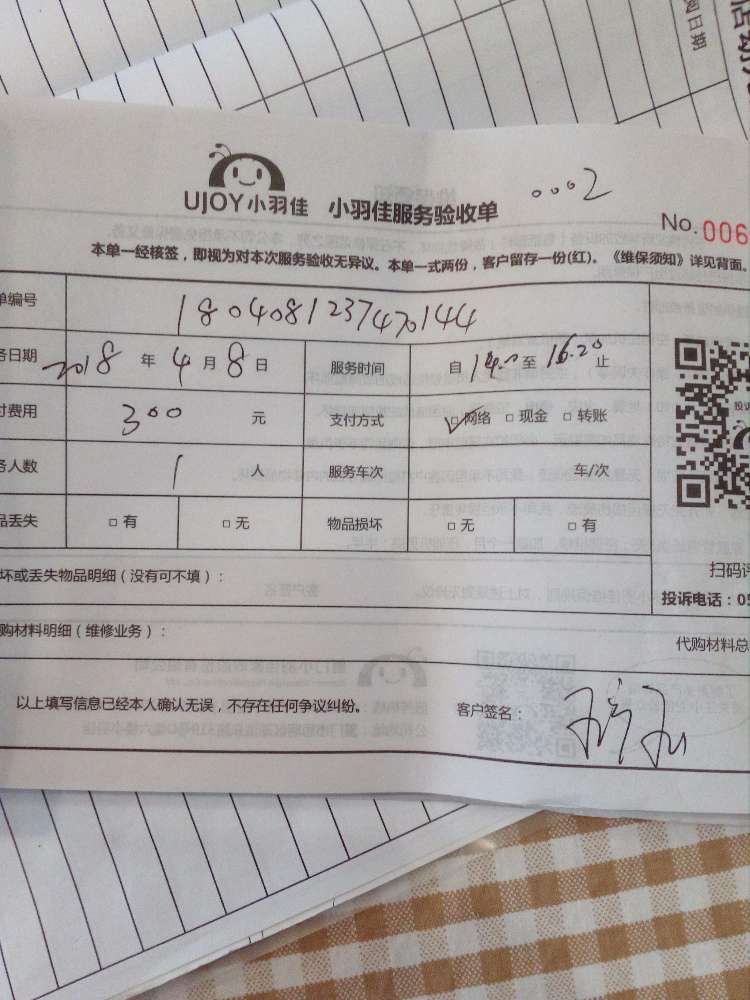 阅日期
UJOY小羽佳 小羽佳服务验收单
0002
No.006
本单一经核签，即视为对本次服务验收无异议。本单一式两份，客户留存一份(红)。《维保须知》详见背面。
单编号 1804081237470144
务日期 2018 年 4 月 8 日 服务时间 自 14.00 至 16.20 止
付费用 300 元 支付方式 网络 现金 转账
务人数 1 人 服务车次 车/次
品丢失 有 无 物品损坏 无 有
坏或丢失物品明细（没有可不填）：
扫码评
投诉电话：05
购材料明细（维修业务）：
代购材料总
以上填写信息已经本人确认无误，不存在任何争议纠纷。 客户签名：